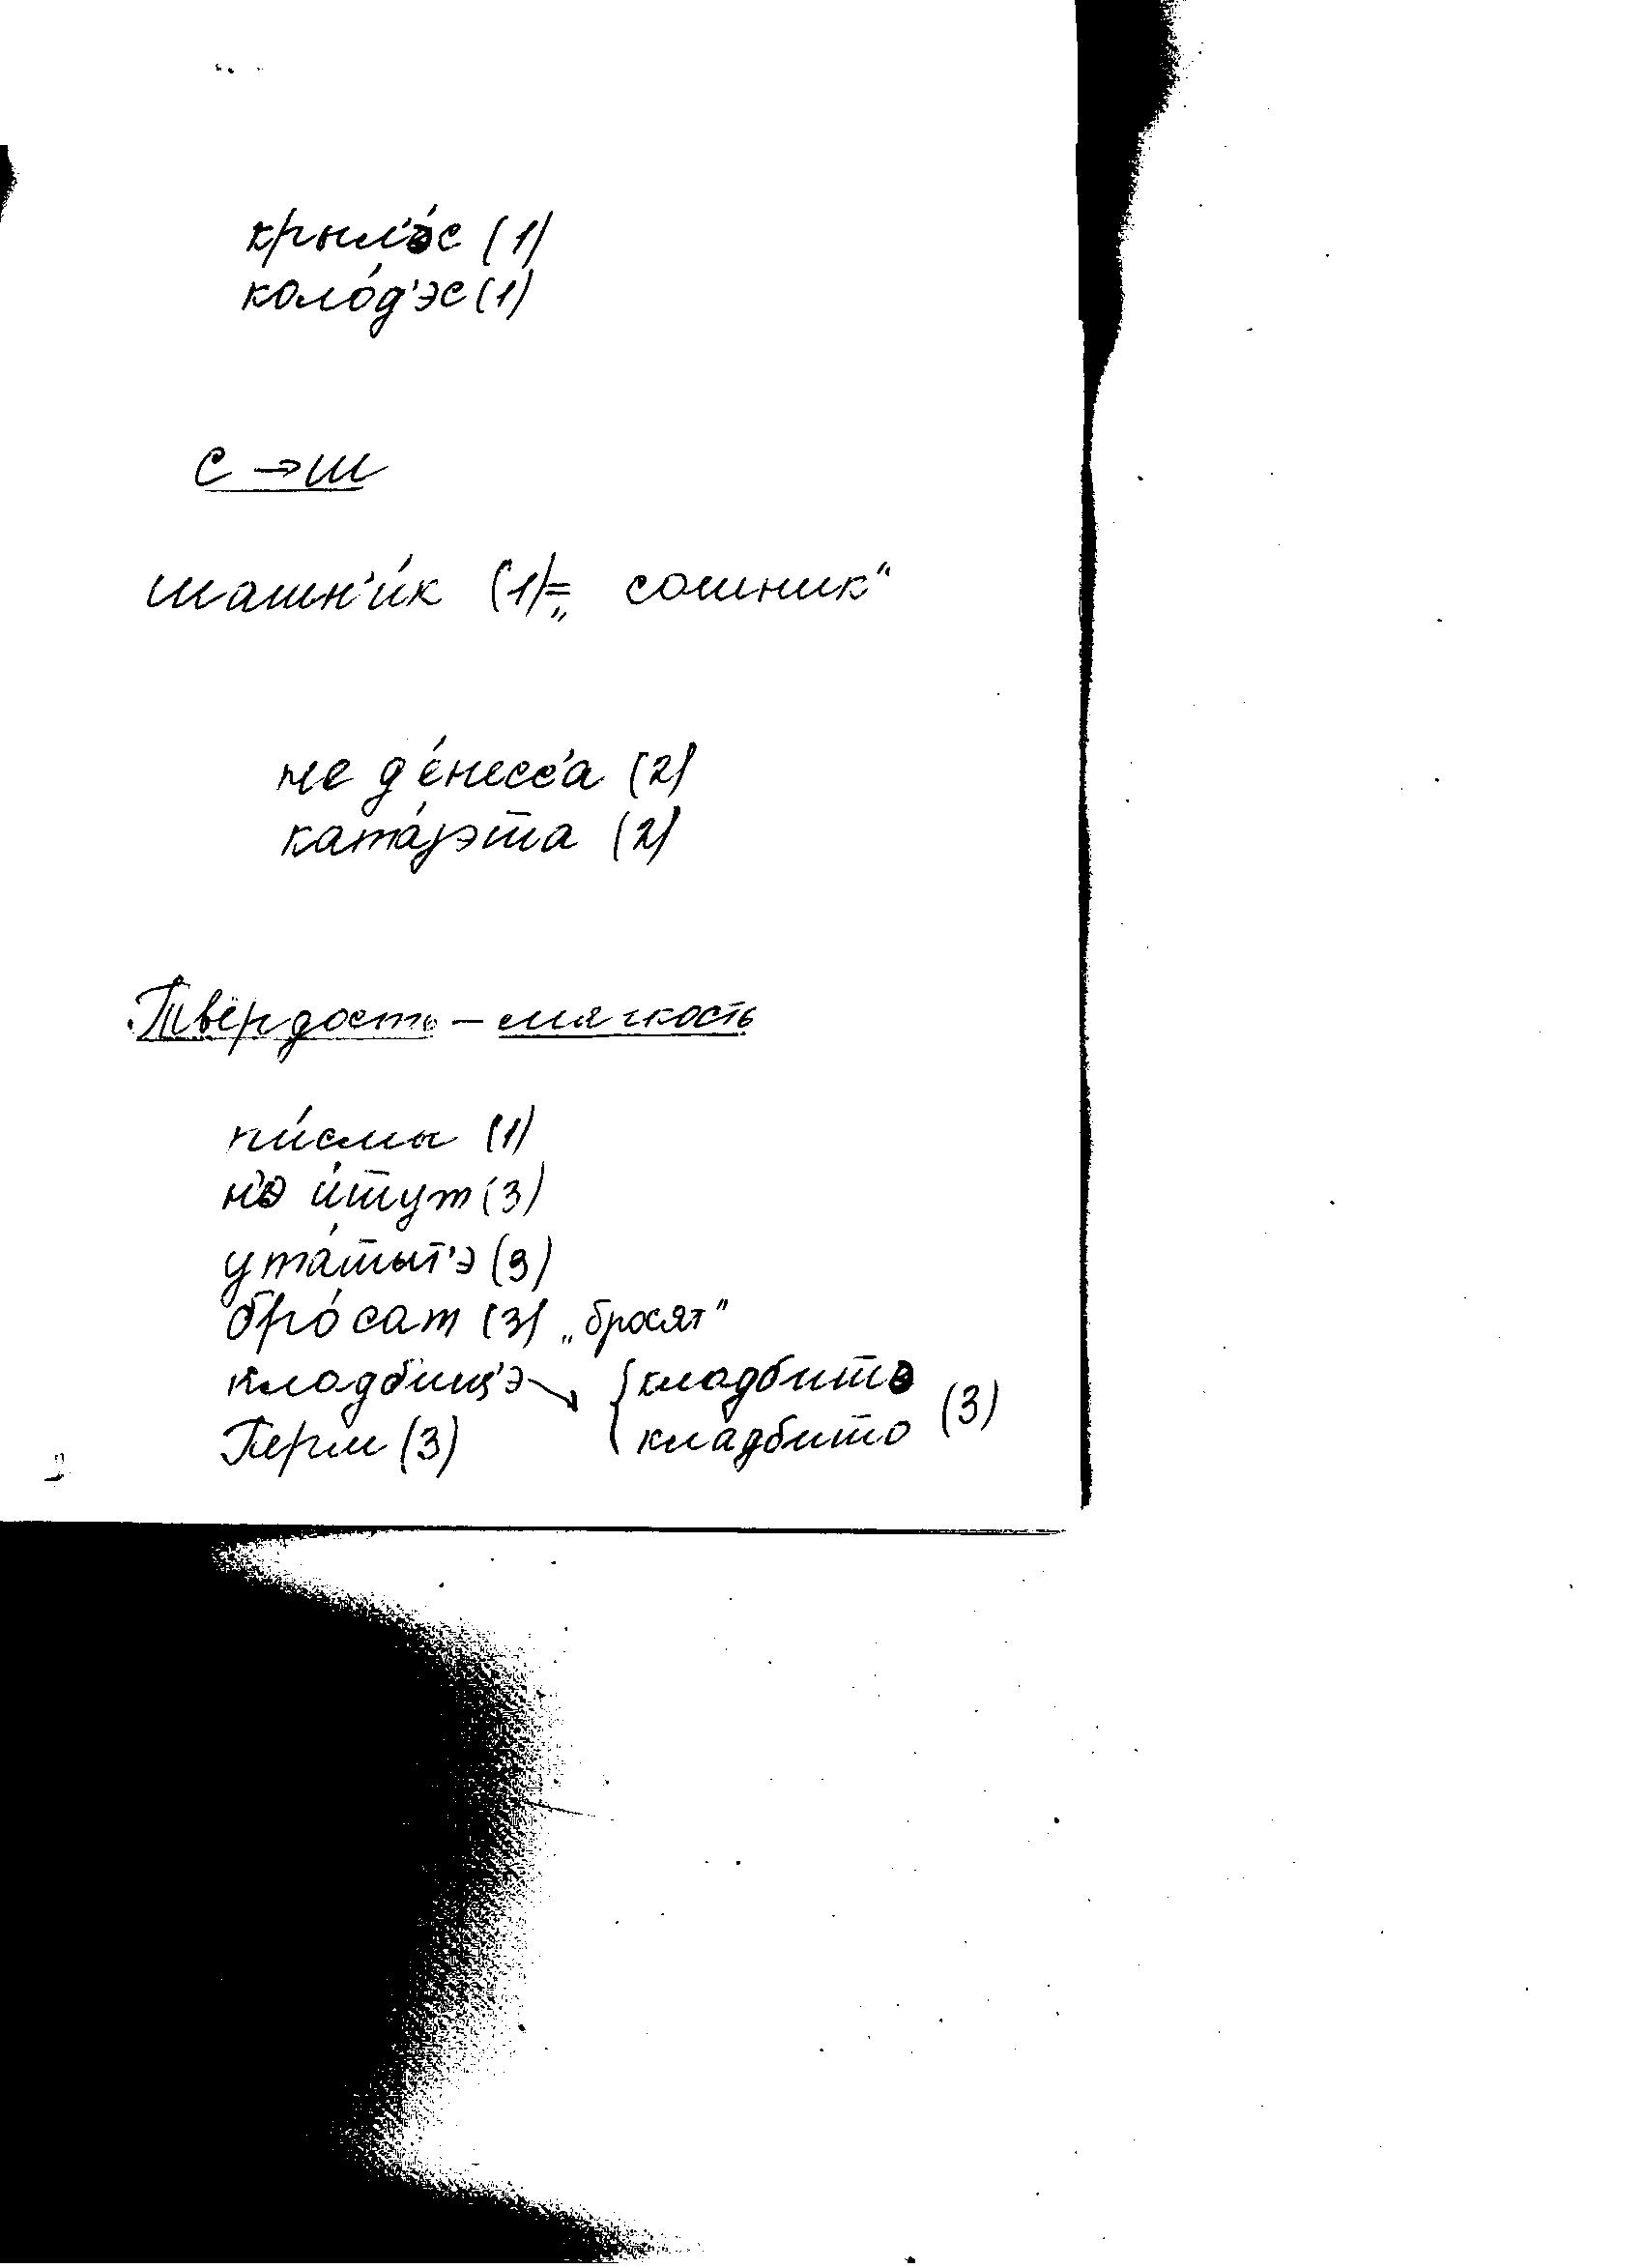 крыл'о́с (1)
коло́д'эс (1)
с → ш
шашн'и́к (1) = „сошник“
не де́несс'а (2)
ката́jэта (2)
Твёрдость – мягкость
пи́смы (1)
н'э и́шут (3)
ута́тыт'э (3)
бро́сат (3) „бросят“
кладбищ'э → { кладбитэ
Перм (3) { кладбито (3)